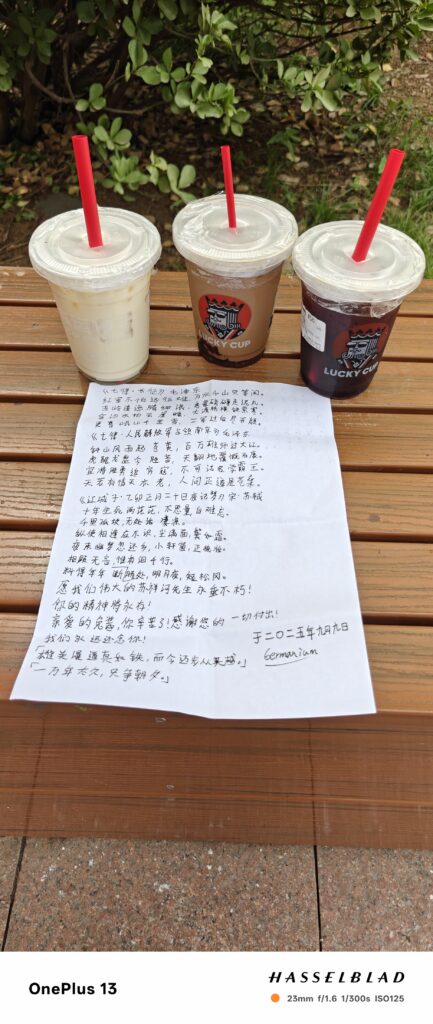 LUCKY CUP
LUCKY CUP
《七律·长征》毛泽东
红军不怕远征难,万水千山只等闲。
五岭逶迤腾细浪,乌蒙磅礴走泥丸。
金沙水拍云崖暖,大渡桥横铁索寒。
更喜岷山千里雪,三军过后尽开颜。
《七律·人民解放军占领南京》毛泽东
钟山风雨起苍黄,百万雄师过大江。
虎踞龙盘今胜昔,天翻地覆慨而慷。
宜将胜勇追穷寇,不可沽名学霸王。
天若有情天亦老,人间正道是沧桑。
《江城子·乙卯正月二十日夜记梦》宋·苏轼
十年生死两茫茫,不思量,自难忘。
千里孤坟,无处话凄凉。
纵使相逢应不识,尘满面,鬓如霜。
夜来幽梦忽还乡,小轩窗,正梳妆。
相顾无言,惟有泪千行。
料得年年断肠处,明月夜,短松冈。
愿我们伟大的苏祥河先生永垂不朽!
你的精神将永存!
亲爱的兔酱,你辛苦了!感谢您的一切付出!
我们永远
于二〇二五年九月九日
Germanium
「雄关漫道真如铁,而今迈步从头越。」
「一万年太久,只争朝夕。」
OnePlus 13
HASSELBLAD
23mm f/1.6 1/300s ISO125